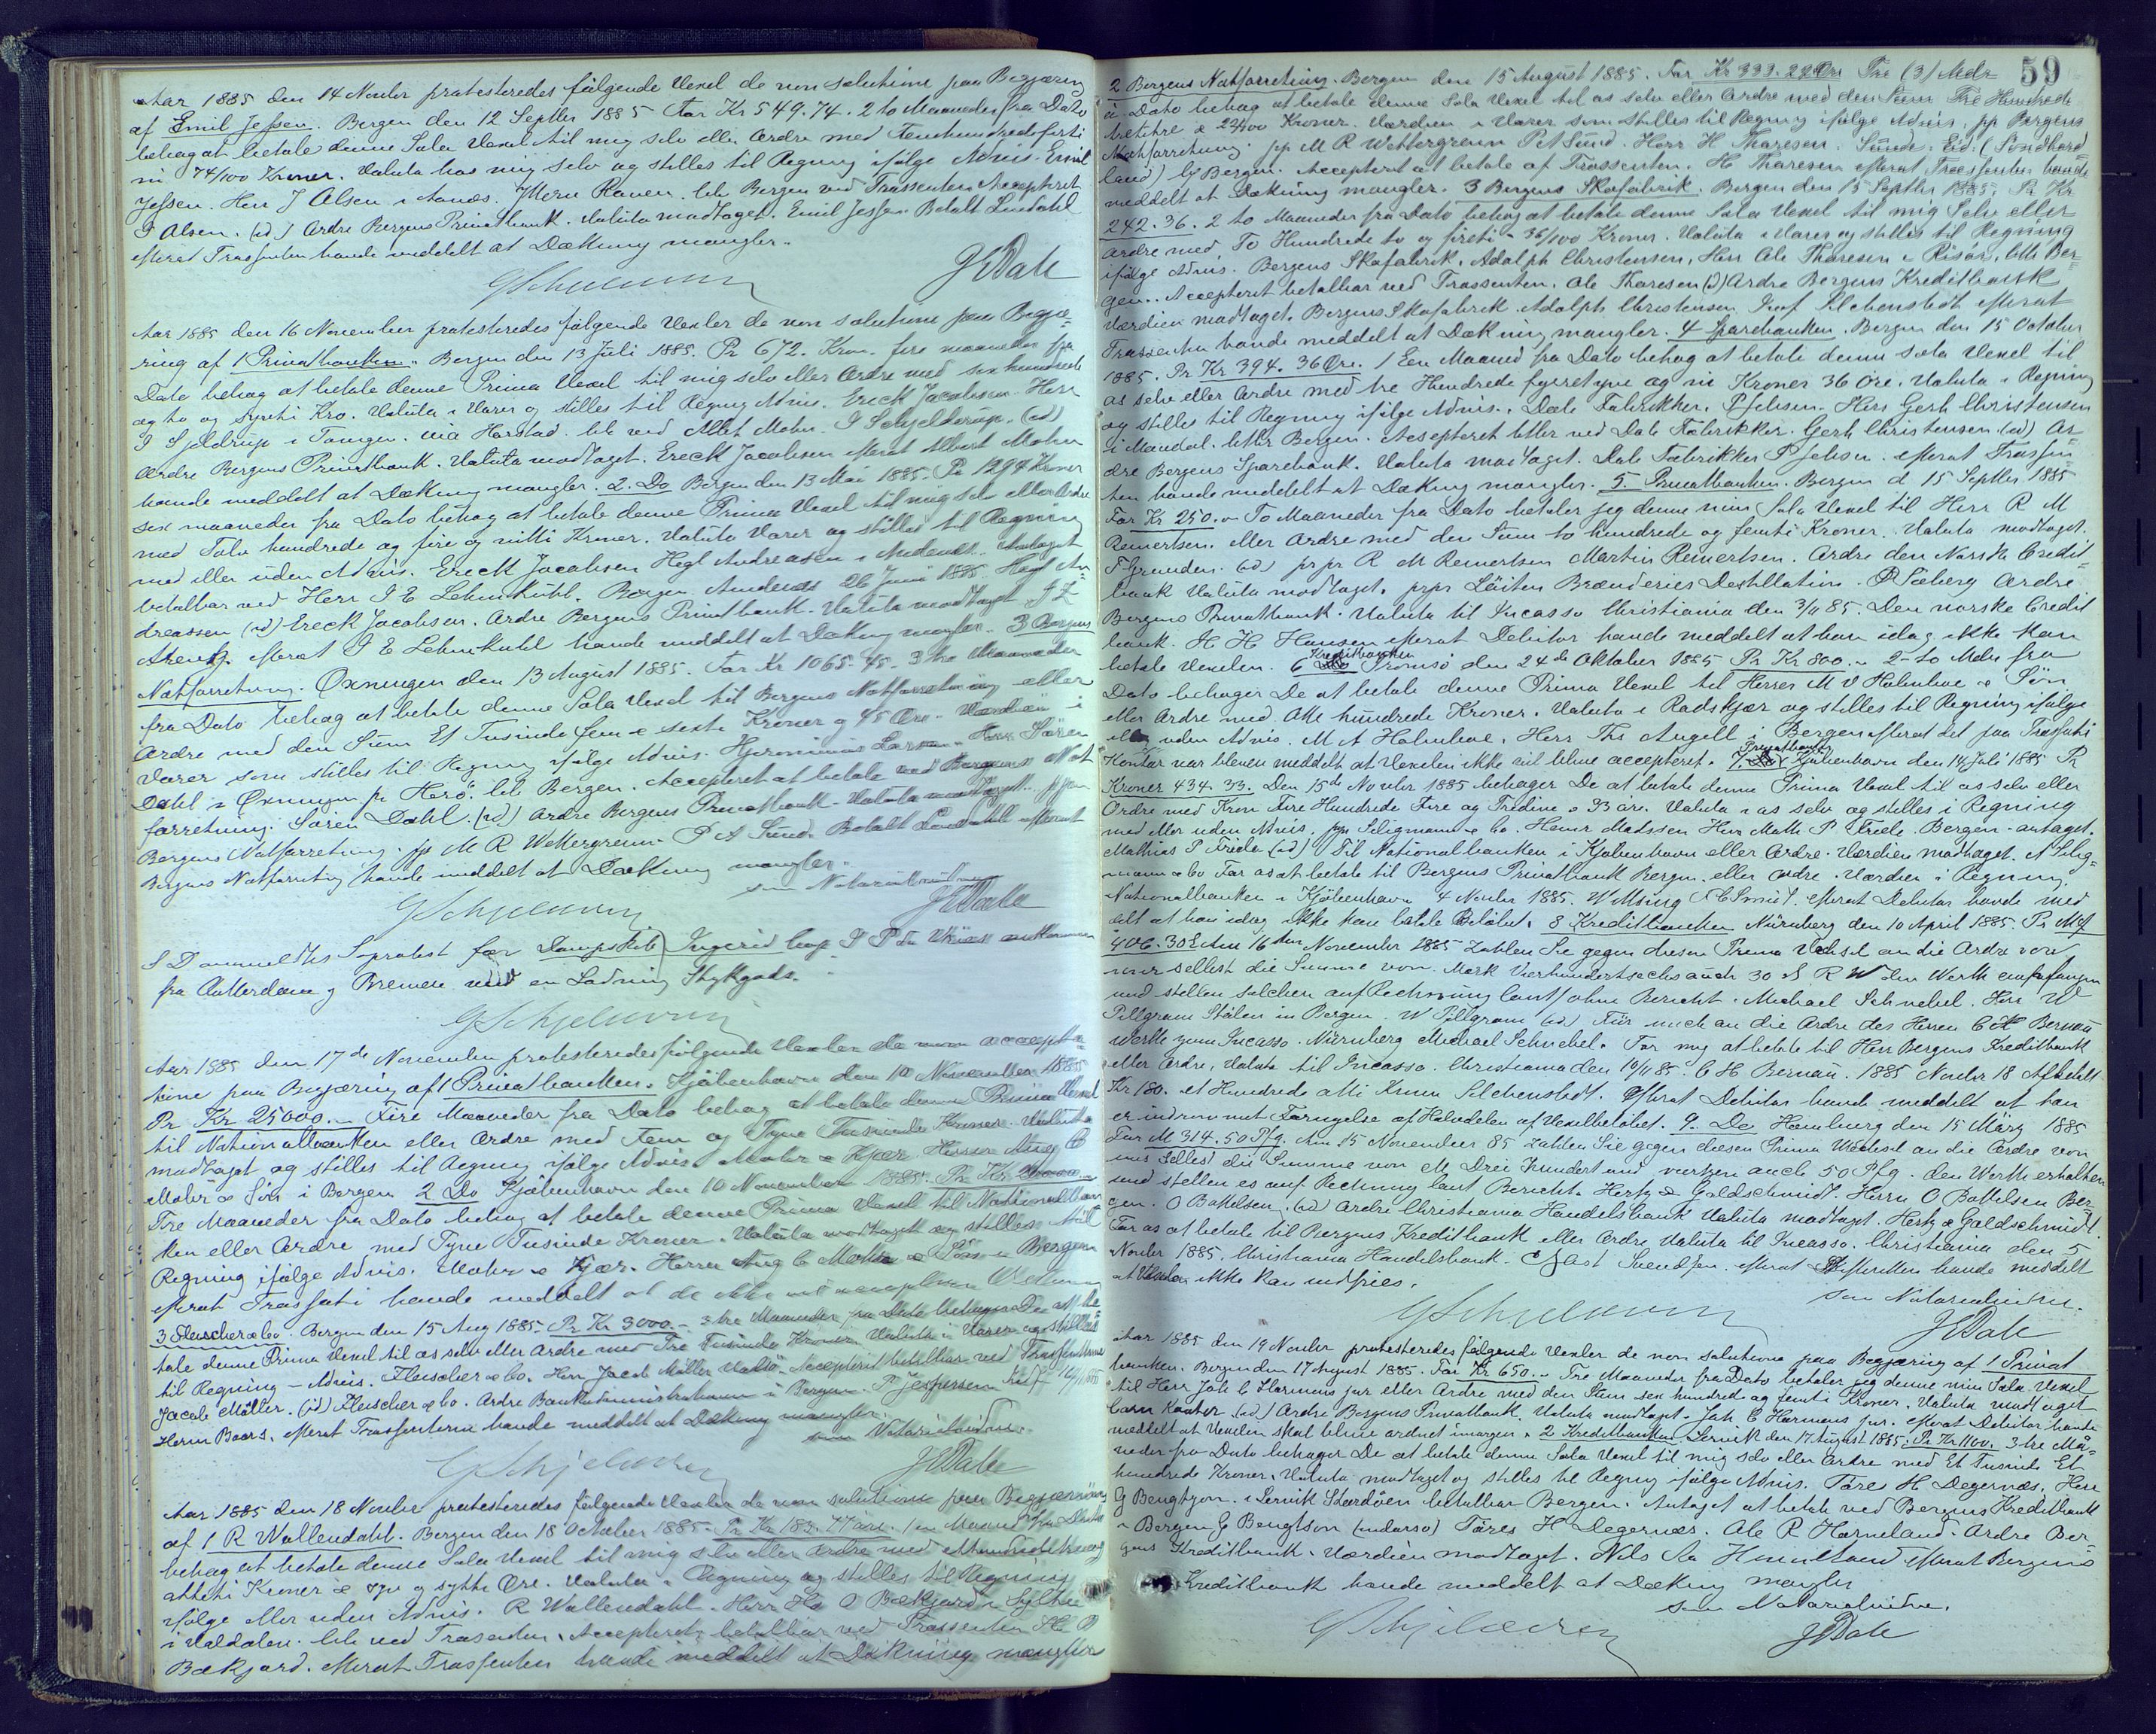 Aar 1885 den 14 Novbr protesteredes følgende Vexel de non solutione paa Begjæring
af Emil Jessen. Bergen den 12 Septbr 1885 For Kr 549.74. 2 to Maaneder fra Dato
behag at betale denne Sola Vexel til mig selv eller Ordre med Femhundredeforti
ni 74/100 Kroner. Valuta hos mig selv og stilles til Regning ifølge Advis. Emil
Jessen. Herr J Olsen i Aanæs. Ytterø Kaven. btb Bergen ved Trassenten Accepteret
J Olsen. (id) Ordre Bergens Privatbank. Valuta modtaget. Emil Jessen Betalt Lindahl
efterat Trassenten havde meddelt at Dækning mangler.
GSchjelderup JEDale
Aar 1885 den 16 November protesteredes følgende Vexler de non solutione paa Begjæ-
ring af 1 Privatbanken. Bergen den 13 Juli 1885. Pr 672. Kron. fire maaneder fra
Dato behag at betale denne Prima Vexel til mig selv eller Ordre med sex hundrede
og to og sytti Kro. Valuta i Varer og stilles til Regning Advis. Erick Jacobsen. Herr
J Sjeldrup i Tangen. via Harstad. btb ved Albt Mohn. J Schjelderup. (id)
Ordre Bergens Privatbank. Valuta modtaget. Erick Jacobsen efterat Albert Mohn
havde meddelt at Dækning mangler. 2. Do Bergen den 13 Mai 1885. Pr 1294 Kroner
sex maaneder fra Dato behag at betale denne Prima Vexel til mig selv eller Ordre
med Tolv hundrede og fire og nitti Kroner. Valuta Varer og stilles til Regning
med eller uden Advis. Erick Jacobsen Hegl Andreasen i Andenes. Antaget
betalbar ved Herr J E Lehmkuhl. Bergen Andenes 26 Juni 1885. Hegl An-
dreassen (id) Erick Jacobsen. Ordre Bergens Privatbank. Valuta modtaget. J E
efterat J E Lehmkuhl havde meddelt at Dækning mangler. 3 Bergens
Notforretning. Øxningen den 13 August 1885. For Kr 1065.45. 3 tre Maaneder
fra Dato behag at betale denne Sola Vexel til Bergens Notforretning eller
Ordre med den Sum Et Tusinde fem & sexti Kroner og 45 Øre. Værdien i
Varer som stilles til Regning ifølge Advis. Hjeronimus Larsen. Herr Sören
Dahl i Øxningen pr Herö. btb Bergen. Accepteret at betale ved Bergens Not
forretning. Sören Dahl. (id) Ordre Bergens Privatbank. Valuta modtaget. pp
Bergens Notforretning. pp M R Wettergreen. P A Sund. Betalt Lindahl efterat
Bergens Notforretning havde meddelt at Dækning mangler.
som Notarialvidne
GSchjelderup JEDale
S D anmeldtes Søprotest for Dampskib Ingerid Capt
fra Rotterdam og Bremen med en Ladning Stykgods.
GSchjelderup
Aar 1885 den 17de November protesteredes følgende Vexler de non accepta-
tione paa Begjæring af 1 Privatbanken. Kjøbenhavn den 10 November 1885
Pr Kr 25000.— Fire Maaneder fra Dato behag at betale denne Prima Vexel
til Nationalbanken eller Ordre med Fem og Tyve Tusinde Kroner. Valuta
modtaget og stilles til Regning ifølge Advis. Mohr & Kjær. Herrer Aug C
Mohr & Søn i Bergen 2 Do Kjøbenhavn den 10 November 1885. Pr Kr
Tre Maaneder fra Dato behag at betale denne Prima Vexel til Nationalban
ken eller Ordre med Tyve Tusinde Kroner. Valuta modtaget og stilles til
Regning ifølge Advis. Mohr & Kjær. Herrer Aug C Mohr & Søn i Bergen
efterat Trassati havde meddelt at de ikke vil acceptere Vexlerne
3 Fleischer & Co. Bergen den 15 Aug 1885. Pr Kr 3000.— 3 tre Maaneder fra Dato behager De at be-
tale denne Prima Vexel til os selv eller Ordre med Tre Tusinde Kroner. Valuta i Varer og stilles
til Regning — Advis. Fleischer & Co. Herr Jacob Möller Vadsö. Accepteret betalbar ved Trassenterne
Jacob Möller. (id) Fleischer & Co. Ordre Bankadministrationen i Bergen. P Jespersen
Herm Baars. efterat Trassenterne havde meddelt at Dækning mangler.
som Notarialvidne
GSchjelderup JEDale
Aar 1885 den 18 Novbr protesteredes følgende Vexler de non solutione paa Begjæring
af 1 R Wallendahl. Bergen den 18 October 1885. Pr Kr 183.77 øre. 1 en Maaned fra Dato
behag at betale denne Sola Vexel til mig selv eller Ordre med
Kroner & syv og sytti Øre. Valuta i Regning og stilles til Regning
ifølge eller uden Advis. R Wallendahl. Herr O Bækjord i Sylte
i Valdalen. btb ved Trassenten. Accepteret betalbar ved Trassenten
Bækjord. efterat Trassenten havde meddelt at Dækning mangler
59
2 Bergens Notforretning. Bergen den 15 August 1885. For Kr 333.22 Øre Tre (3) Mdr
à Dato behag at betale denne Sola Vexel til os selv eller Ordre med den Sum Tre Hundrede
tre & 22/100 Kroner. Værdien i Varer som stilles til Regning ifølge Advis. pp Bergens
Notforretning. pp M R Wettergreen P A Sund. Herr H Thoresen. Sunde. Eid. (Söndhord
land) btb Bergen. Accepteret at betale af Trassenten. H Thoresen efterat Trassenten havde
meddelt at Dækning mangler. 3 Bergens Skofabrik. Bergen den 15 Septbr 1885. Pr Kr
242.36. 2 to Maaneder fra Dato behag at betale denne Sola Vexel til mig Selv eller
Ordre med, To Hundrede to og firti - 36/100 Kroner. Valuta i Varer og stilles til Regning
ifølge Advis. Bergens Skofabrik. Adolph Christensen. Herr Ole Thoresen i Risör. btb Ber-
gen. Accepteret betalbar ved Trassenten. Ole Thoresen (id) Ordre Bergens Kreditbank
Værdien modtaget. Bergens Skofabrik Adolph Christensen Knof Ilchenstedt efterat
Trassenten havde meddelt at Dækning mangler. 4 Sparebanken. Bergen den 15 October
1885. Pr Kr 394.36 Øre. 1 Een Maaned fra Dato behag at betale denne Sola Vexel til
os selv eller Ordre med tre Hundrede fireretyve og ni Kroner 36 Øre. Valuta i Regning
og stilles til Regning ifølge Advis. Dale Fabrikker. P Jebsen. Herr Gerh Christensen
i Mandal. btbr Bergen. Accepteret btbr ved Dale Fabrikker. Gerh Christensen (id) Or-
dre Bergens Sparebank. Valuta modtaget. Dale Fabrikker P Jebsen. efterat Trassen
ten havde meddelt at Dækning mangler. 5. Privatbanken. Bergen d 15 Septbr 1885
For Kr 250.— To Maaneder fra Dato betaler jeg denne min Sola Vexel til Herr R M
Reinertsen. eller Ordre med den Sum to hundrede og femti Kroner. Valuta modtaget.
F Grunden. (id) pr pr R M Reinertsen Martin Reinertsen. Ordre den Norske Credit-
bank Valuta modtaget. prpr Löiten Brænderies Destillation. P Søeberg Ordre
Bergens Privatbank. Valuta til Incasso Christiania den 3/11 85. Den norske Credit
bank. H H Hansen efterat Debitor havde meddelt at han idag ikke kan
betale Vexelen. 6 Kreditbanken Tromsø den 24de Oktober 1885 Pr Kr 800.— 2-to Mdr fra
Dato behager De at betale denne Prima Vexel til Herrer M A Holmboe & Søn
eller Ordre med. Otte hundrede Kroner. Valuta i Radskjær og stilles til Regning ifølge
eller uden Advis. M A Holmboe. Herr Ths Angell i Bergen efterat det paa Trassati
Kontor var bleven meddelt at Vexelen ikke vil blive accepteret. 7. Privatbanken Kjøbenhavn den 14 Juli 1885 Pr
Kroner 434.33. Den 15de Novbr 1885 behager De at betale denne Prima Vexel til os selv eller
Ordre med Kron Fire Hundrede Fire og Tredive & 33 öre. Valuta i os selv og stilles i Regning
med eller uden Advis. pp Seligmann & Co. Henr Madssen Herr Math P Friele. Bergen - antaget.
Mathias P Friele (id) Til Nationalbanken i Kjøbenhavn eller Ordre. Værdien modtaget. A Selig-
mann & Co For os at betale til Bergens Privatbank Bergen. eller Ordre. Værdien i Regning.
Nationalbanken i Kjøbenhavn 4 Novbr 1885. W Msing C Smidt. efterat Debitor havde med
delt at han idag ikke kan betale Beløbet. 8 Kreditbanken Nürnberg den 10 April 1885. Pr Mk
406.30 Am 16ten November 1885 zahlen Sie gegen diesen Prima Wechsel an die Ordre von
mir selbst die Summe von. Mark Vierhundertsechs auch 30 d R W den Werth empfangen
und stellen solchen auf Rechnung laut/ohne Bericht. Michael Schnebel. Herr W
Pillgram Stölen in Bergen. W Pillgram (id) Für mich an die Ordre des Herren C H Bernau
Werthe zum Incasso. Nürnberg Michael Schnebel. For mig at betale til Herr Bergens Kreditbank
eller Ordre, Valuta til Incasso. Christiania den 10/11 85. C H Bernau. 1885 Novbr 18 Afbetalt
Kr 180. et Hundrede otti Kroner Ilchenstedt. efterat Debitor havde meddelt at han
er indrømmet Fornyelse af Halvdelen af Vexelbeløbet. 9. Do Hamburg den 15 März 1885
For M 314.50 Pfg. Am 15 November 85 zahlen Sie gegen diesen Prima Wechsel an die Ordre von
uns Selbst die Summe von M Drei Hundert und vierzen auch 50 Pfg. den Werth erhalten
und stellen es auf Rechnung laut Bericht. Hertz & Goldschmidt. Herrn O Bottelsen Ber-
gen. O Bottelsen. (id) Ordre Christiania Handelsbank Valuta modtaget. Hertz & Goldschmidt.
For os at betale til Bergens Kreditbank eller Ordre Valuta til Incasso. Christiania den 5
Novbr 1885. Christiania Handelsbank. C Gast Svendsen. efterat havde meddelt
at Vexelen ikke kan indfries.
som Notarialvidne.
GSchjelderup JEDale
Aar 1885 den 19 Novbr protesteredes følgende Vexler de non solutione paa Begjæring af 1 Privat
banken. Bergen den 17 August 1885. For Kr 650.— Tre Maaneder fra Dato betaler jeg denne min Sola Vexel
til Herr Joh C Harmens jur eller Ordre med den Sum sex hundrede og femti Kroner. Valuta modtaget
Carn Kanter (id) Ordre Bergens Privatbank. Valuta modtaget. Joh C Harmens jur. efterat Debitor havde
meddelt at Vexelen skal blive ordnet imorgen. 2 Kreditbanken Lervik den 17 August 1885. Pr Kr 1100. 3 tre Maa-
neder fra Dato behager De at betale denne Sola Vexel til mig selv eller Ordre med Et Tusinde Et
hundrede Kroner. Valuta modtaget og stilles til Regning ifølge Advis. Tore H Degernæs. Herr
G Bengtson. i Lervik Stordöen betalbar Bergen. Antaget at betale ved Bergens Kreditbank
i Bergen G Bengtson (indorso) Tores H Degernæs. Ole R Horneland. Ordre Ber-
gens Kreditbank. Værdien modtaget. Nils Aa efterat Bergens
Kreditbank havde meddelt at Dækning mangler
som Notarialvidne.
GSchjelderup JEDale